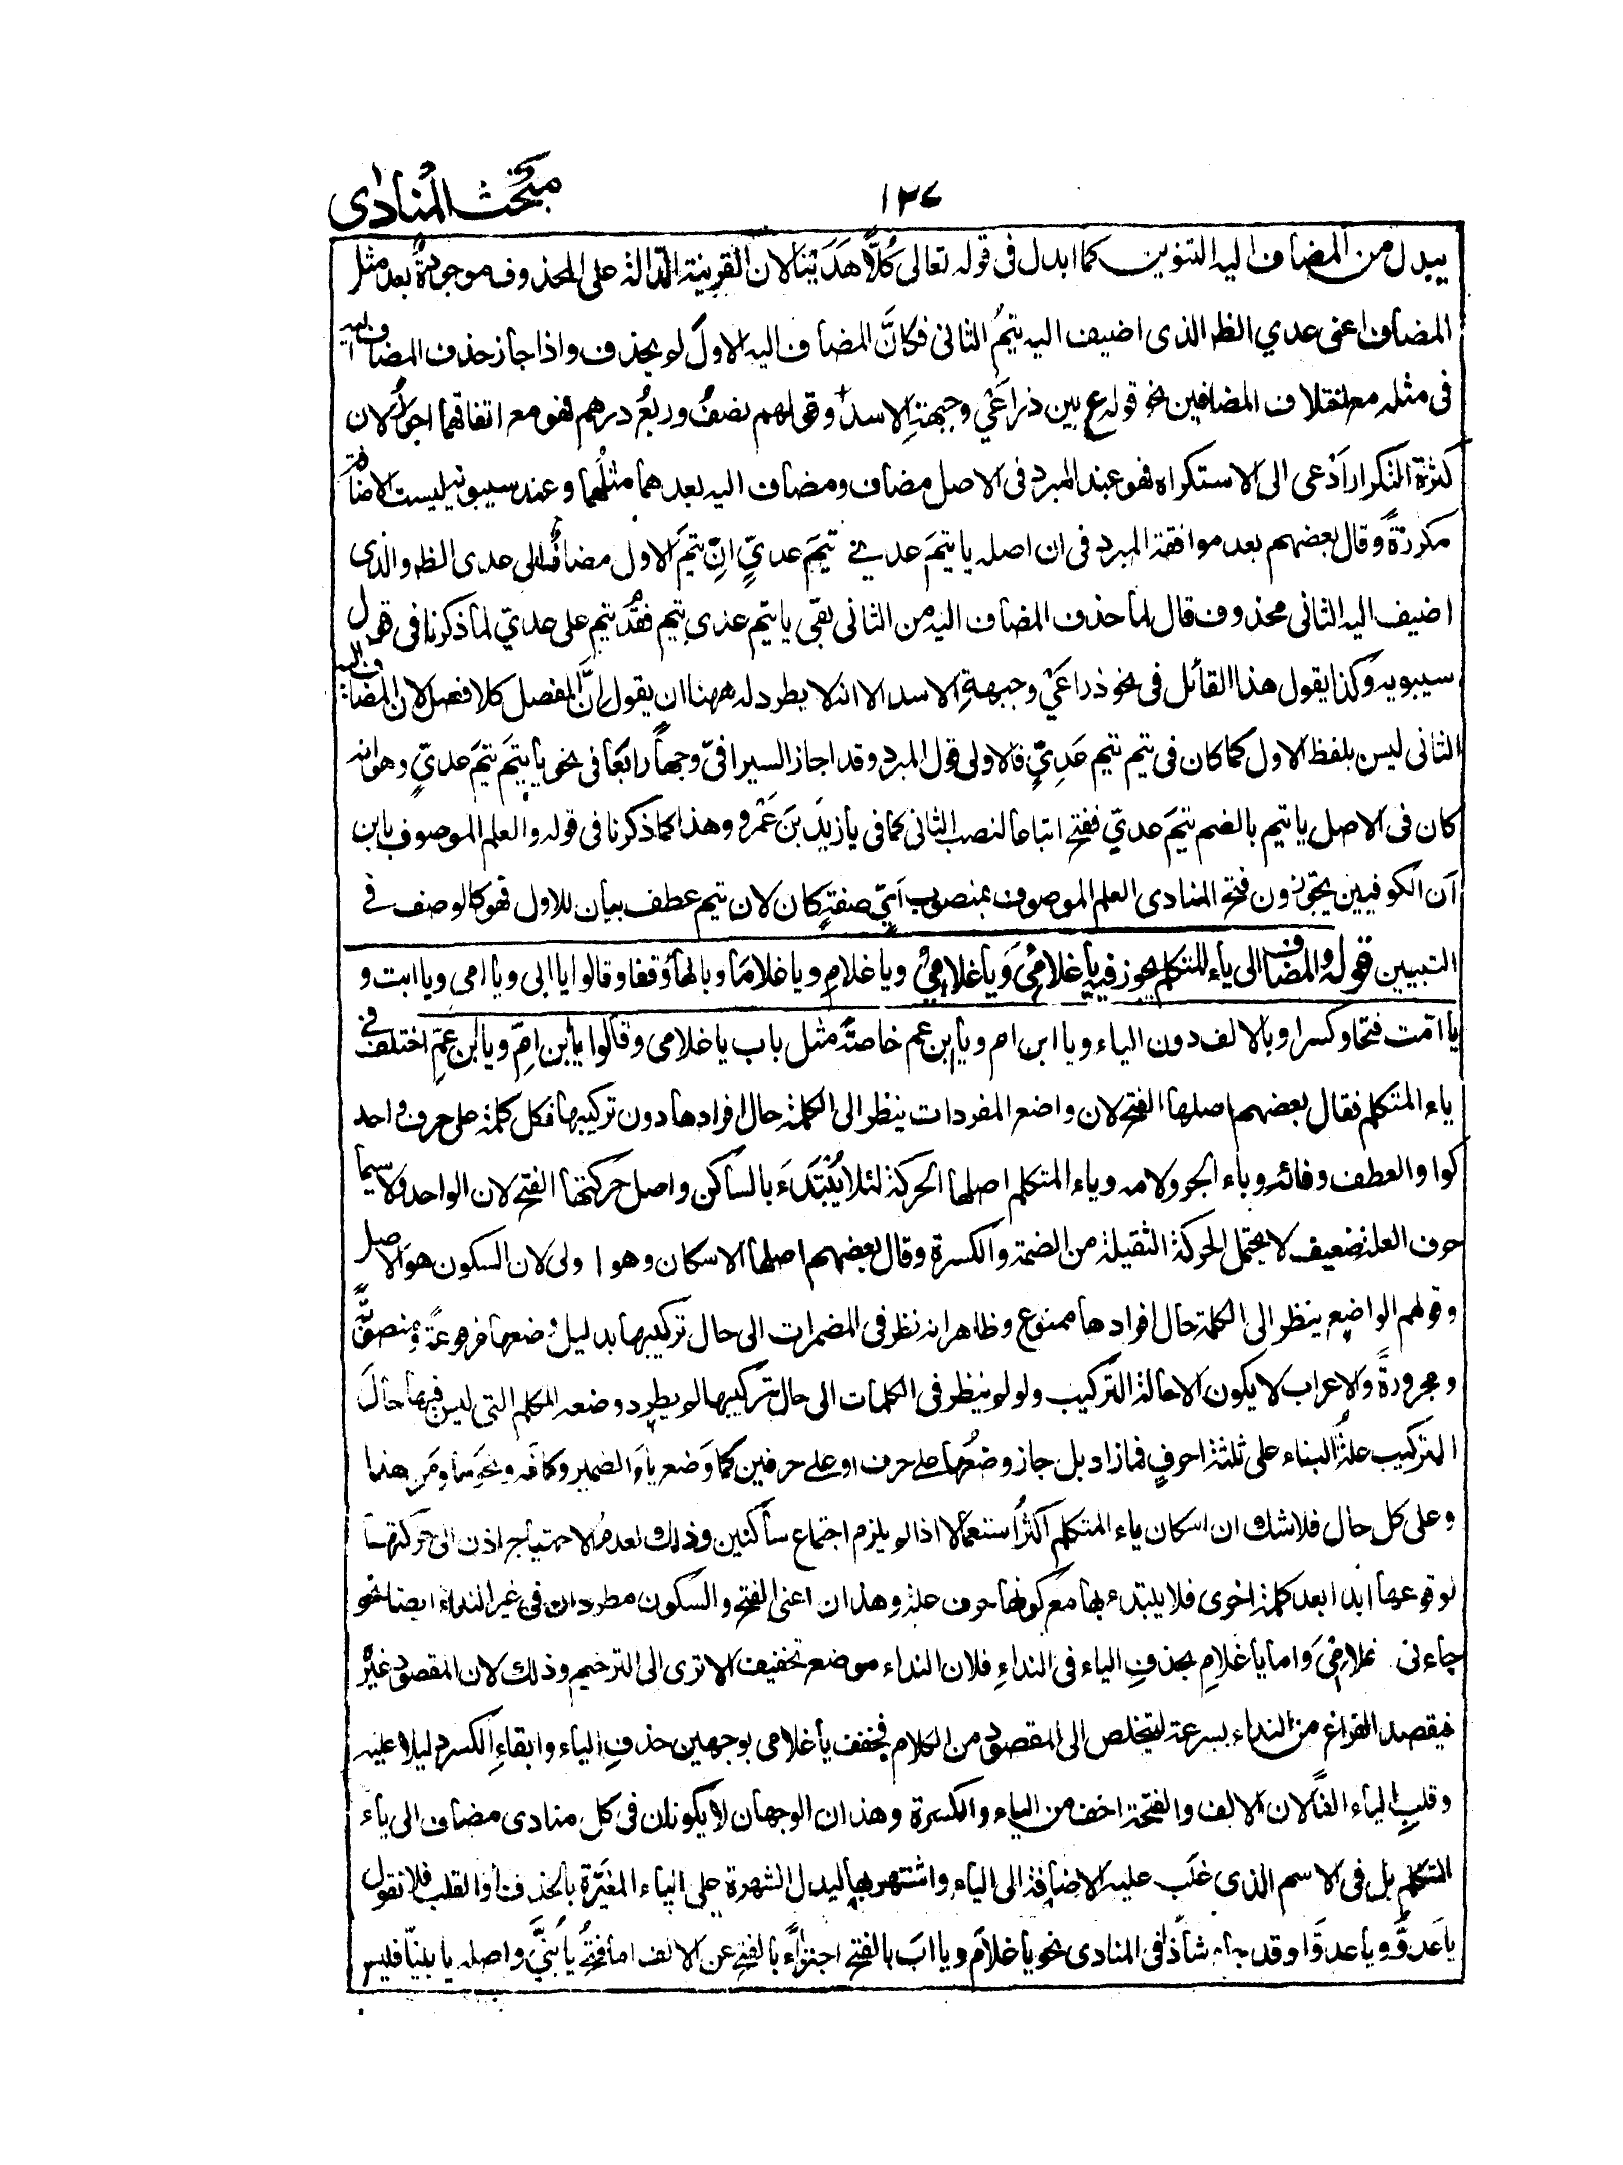 مبحث المنادى
١٢٧
يبدل من المضاف اليه التنوين كما ابدل فى قوله تعالى كُلًّا هَدَيْنَا لان القرينة الدّالة على المحذوف موجودةٌ بعد مثل
المضاف اعنى عدي الظ الذى اضيف اليه تيمُ الثانى فكانَّ المضاف اليه الاول لم يحذف واذا جاز حذف المضاف اليه
فى مثله مع اختلاف المضافين نحو قوله ع بين ذراعَىْ وجبهةِ الاسد وقولهم نصفُ وربعُ درهم فهو مع اتفاقهما اجوز لان
كثرة التكرار اَدْعى الى الاستكراه فهو عند المبرد فى الاصل مضاف ومضاف اليه بعدهما مثلُهما وعند سيبويه ليست الاضافة
مكررةً وقال بعضهم بعد موافقة المبرد فى ان اصله يا تيمَ عدي تيمَ عديٍّ انّ تيمَ الاول مضافٌ الى عدى الظ والذى
اضيف اليه الثانى محذوف قال لما حذف المضاف اليه من الثانى بقى يا تيم عدى تيم فقُدّم تيم على عديّ لما ذكرنا فى قول
سيبويه وكذا يقول هذا القائل فى نحو ذراعَىْ وجبهةِ الاسد الا انه لا يطرد له ههنا ان يقول انَّ المفصل كلا فصل لان المضاف اليه
الثانى ليس بلفظ الاول كما كان فى تيم تيم عَدِيٍّ فالاولى قول المبرد وقد اجاز السيرافىّ وجهاً رابعًا فى نحو يا تيمَ تيمَ عديٍّ وهو انه
كان فى الاصل يا تيم بالضم تيمَ عديّ ففتح اتباعا لنصب الثانى كما فى يا زيدَ بنَ عَمْرو وهذا كما ذكرنا فى قوله والعلم الموصوف بابن
اَن الكوفيين يجوّزون فتح المنادى العلم الموصوف بمنصوب اَيّ صفةٍ كان لان تيم عطف بيان للاول فهو كالوصف فى
التبيين قوله والمضاف الى ياء المتكلم يجوز فيه يا غلامِىْ وَيا غلامِىَ ويا غلامِ ويا غلامَا وبالهاء وقفا وقالوا يا ابى ويا امى ويا ابت و
يا امّت فتحا وكسرا وبالالف دون الياء ويا ابن ام ويا ابن عم خاصةً مثل باب يا غلامى وقالوا يا بن امِّ ويا بن عمِّ اختلف فى
ياء المتكلم فقال بعضهم اصلها الفتح لان واضع المفردات ينظر الى الكلمة حال افرادها دون تركيبها فكل كلمة على حرف واحد
كواو العطف وفائه وباء الجر ولامه وياء المتكلم اصلها الحركة لئلا يُبْتَدَءَ بالساكن واصل حركتها الفتح لان الواحد ولا سيما
حرف العلة ضعيف لا يحتمل الحركة الثقيلة من الضمة والكسرة وقال بعضهم اصلها الاسكان وهو اولى لان السكون هو الاصل
وقولهم الواضع ينظر الى الكلمة حال افرادها ممنوع وظاهر انه نظر فى المضمرات الى حال تركيبها بدليل وضعها مرفوعةً ومنصوبةً
ومجرورةً والاعراب لا يكون الا حالة التركيب ولو لم ينظر فى الكلمات الى حال تركيبها لم يطرد وضعه الكلم التى ليس فيها حالَ
التركيب علةُ البناء على ثلثة احرفٍ فما زاد بل جاز وضعُها على حرف او على حرفين كما وَضع ياءَ الضمير وكافه ونحوَ ما ومَن هذا
وعلى كل حال فلا شك ان اسكان ياء المتكلم اكثرُ استعمالا اذا لم يلزم اجتماع ساكنين وذلك لعدم الاحتياج اذن الى حركتها
لوقوعها ابدا بعد كلمة اخرى فلا يبتدء بها مع كونها حرف علة وهذان اعنى الفتح والسكون مطردان فى غير النداء ايضا نحو
جاءنى غلامِىَ وَاما يا غلامِ بحذفِ الياء فى النداءِ فلان النداء موضع تخفيف الا ترى الى الترخيم وذلك لان المقصود غيرُه
فيقصد الفراغ من النداء بسرعة ليتخلص الى المقصود من الكلام فخفف يا غلامى بوجهين حذفِ الياء وابقاءِ الكسر دليلا عليه
وقلبِ الياء الفًا لان الالف والفتحة اخف من الياء والكسرة وهذان الوجهان لا يكونان فى كل منادى مضاف الى ياء
المتكلم بل فى الاسم الذى غلب عليه الاضافة الى الياء واشتهر بها ليدل الشهرة على الياء المغيّرة بالحذف او القلب فلا نقول
يا عدوِّ ويا عدوَّا وقد جاء شاذا فى المنادى نحو يا غلامَ ويا ابَ بالفتح اجتزاءً بالفتح عن الالف اما فتحُ يا بُنَيَّ واصله يا بنيّا فليس